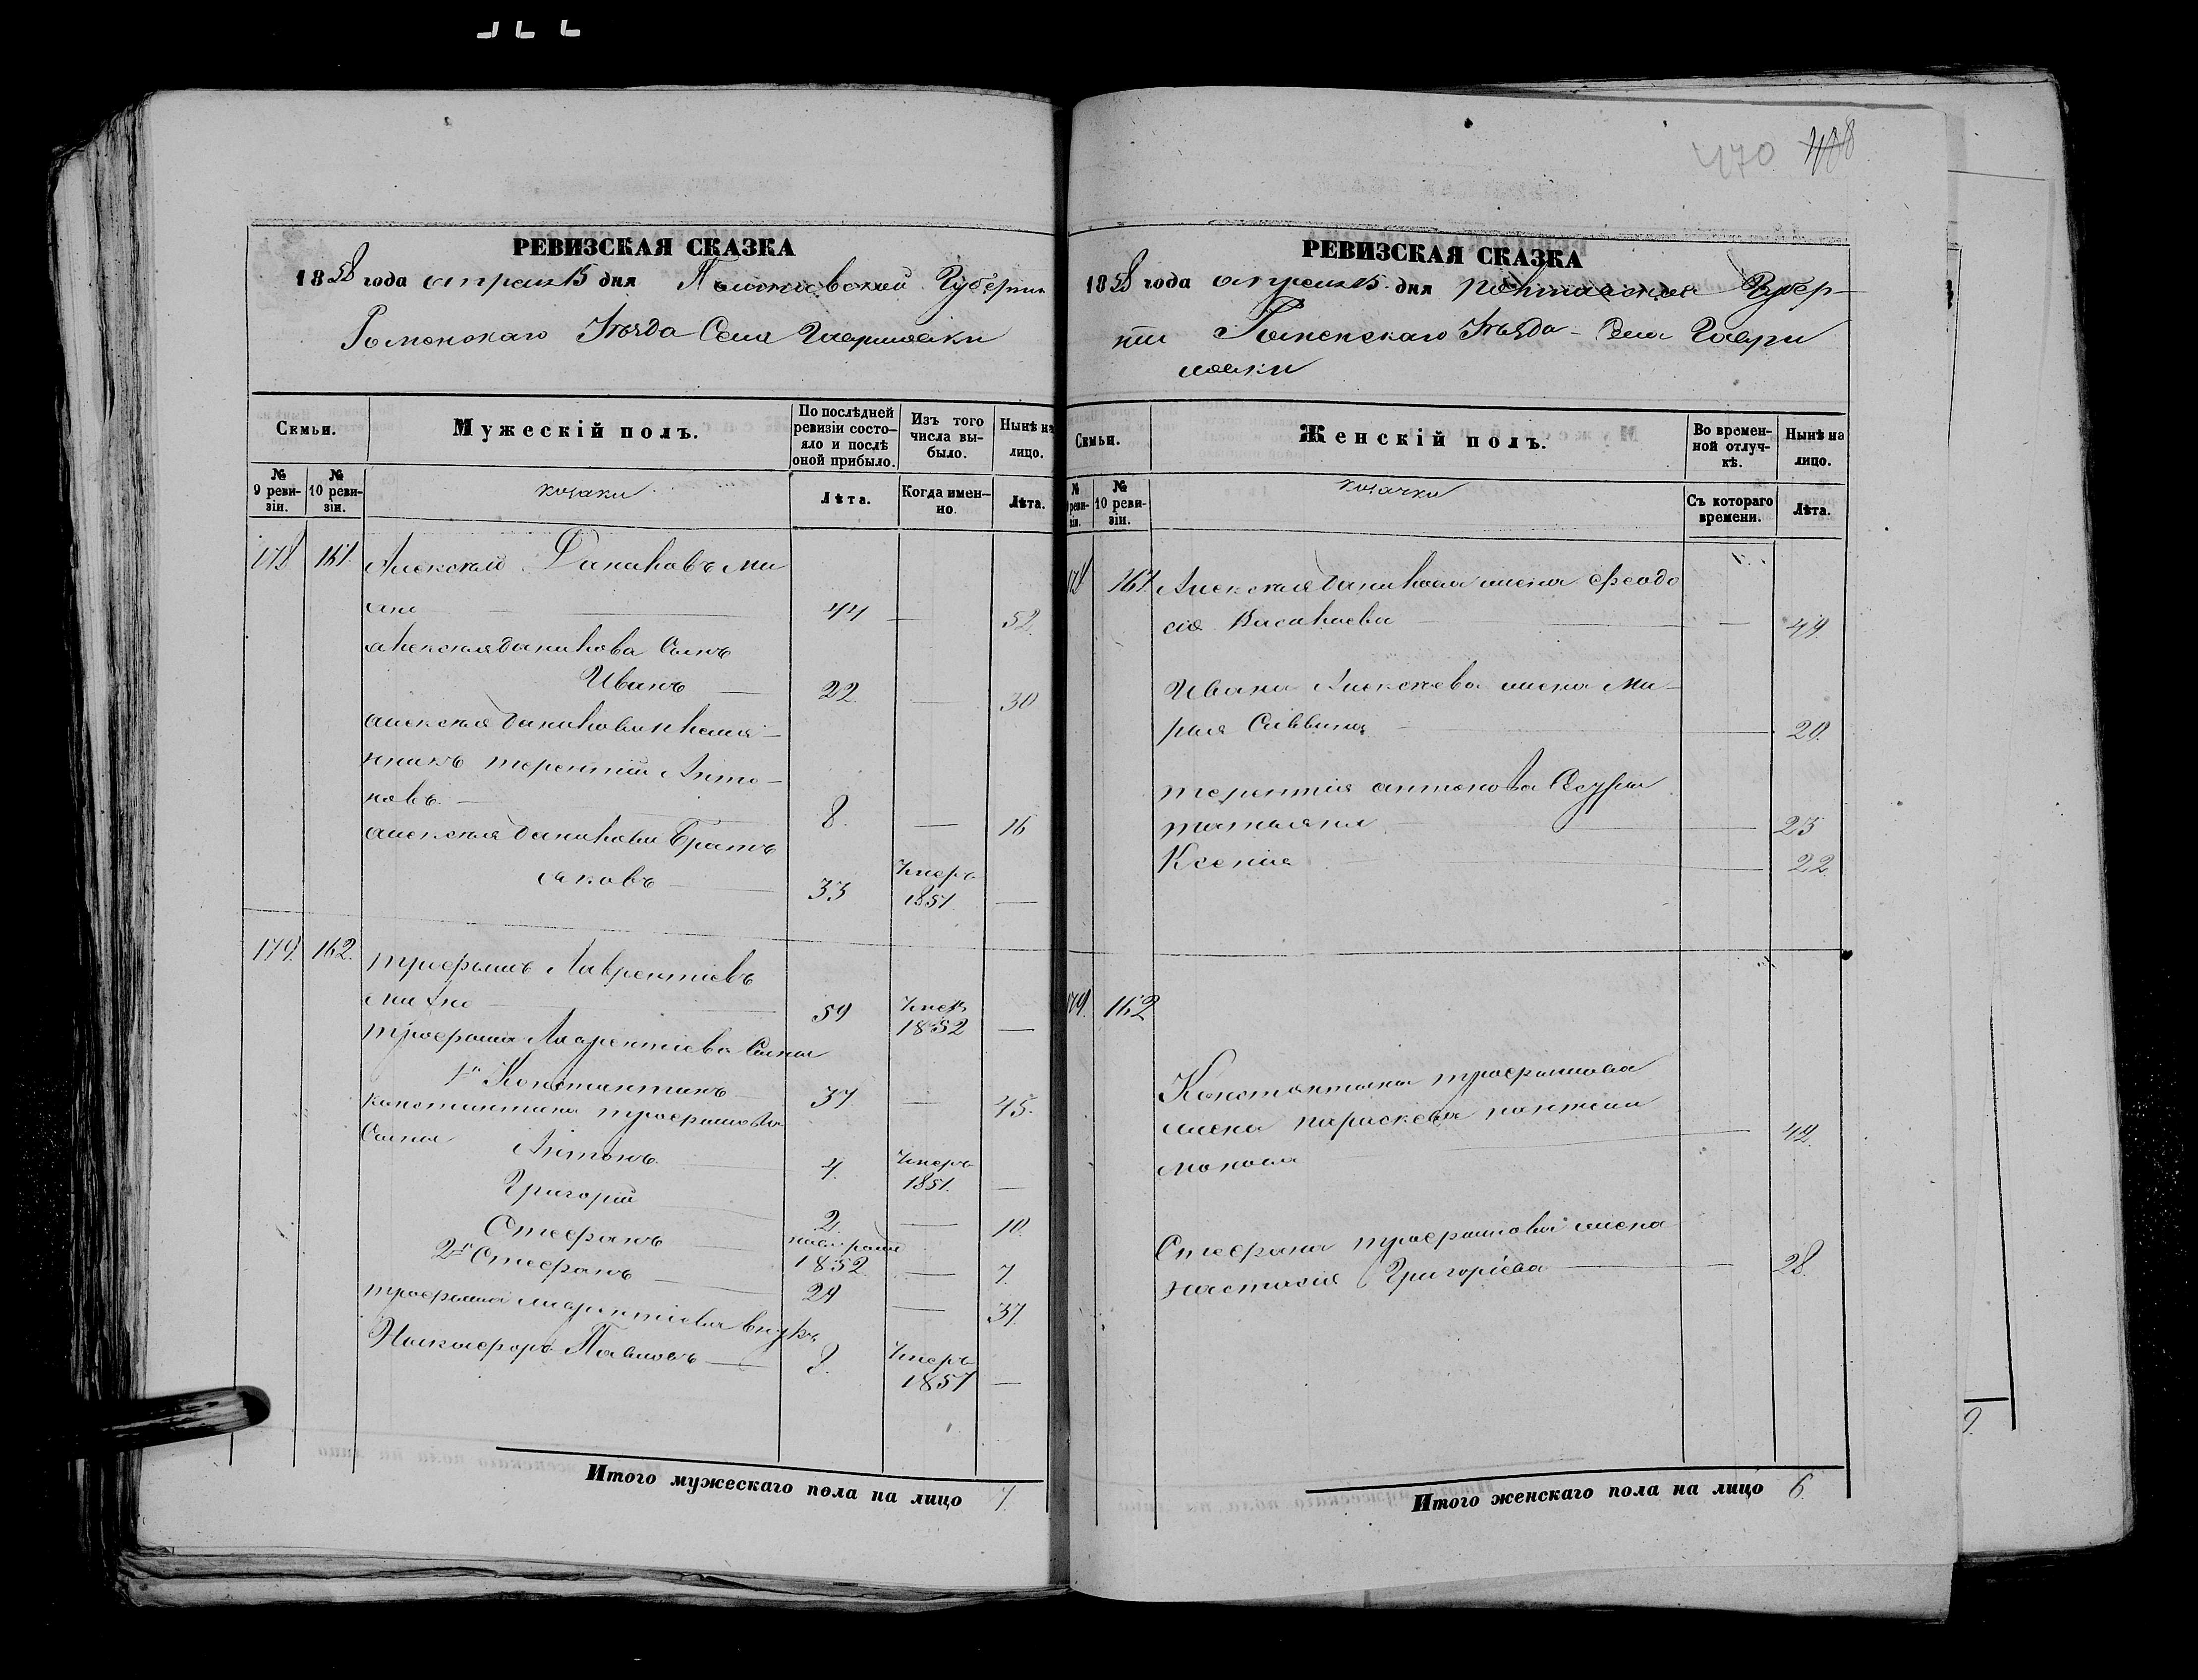 470 488
РЕВИЗСКАЯ СКАЗКА
1858 года апреля 15 дня Полтавской Губернии
Роменскаго Уѣзда Села Гавриловки
Семьи.
Мужескій полъ.
По послѣдней ревизіи состояло и послѣ оной прибыло.
Изъ того числа выбыло.
Нынѣ на лицо.
№ 9 ревизіи.
№ 10 ревизіи.
козаки
Лѣта.
Когда именно.
Лѣта.
178 161. Алексѣй Даниловъ Ми
44 — 52.
Алексѣя Данилова Сынъ
Иванъ — 22. — 30
Алексѣя Данилова племя-
нникъ Терентій Анто-
новъ — 8. — 16
Алексѣя Данилова Братъ
Яковъ — 33 Умеръ 1851. —
179. 162. Трофимъ Лаврентіевъ
59 Умеръ 1852 —
Трофима Лаврентіева Сыны
1й Константинъ 37 — 45.
Константина Трофимова
Сыны Антонъ 4. Умеръ 1851. —
Григорій 2. — 10.
Стефанъ 1852 — 7.
2й Стефанъ — 29 — 37.
Трофима Лаврентіева внукъ
Никифоръ Павловъ — 8. Умеръ 1857 —
Итого мужескаго пола на лицо 7.
РЕВИЗСКАЯ СКАЗКА
1858 года апреля 15. дня Полтавской Губер-
ніи Роменскаго Уѣзда – Села Гаври
ловки
Семьи.
Женскій полъ.
Во временной отлучкѣ.
Нынѣ на лицо.
№ 9 ревизіи.
№ 10 ревизіи.
козачки
Съ котораго времени.
Лѣта.
178 161. Алексѣя Данилова жена Феодо
сія Васильева — — 49
Ивана Алексѣева жена Ма-
рія Саввина — 20.
Терентія Антонова Сестры
Татьяна — 23
Ксенія — 22.
179. 162
Константина Трофимова
жена Параскева Пантели
монова — 42.
Стефана Трофимова жена
Настасія Григоріева — 28.
Итого женскаго пола на лицо 6.